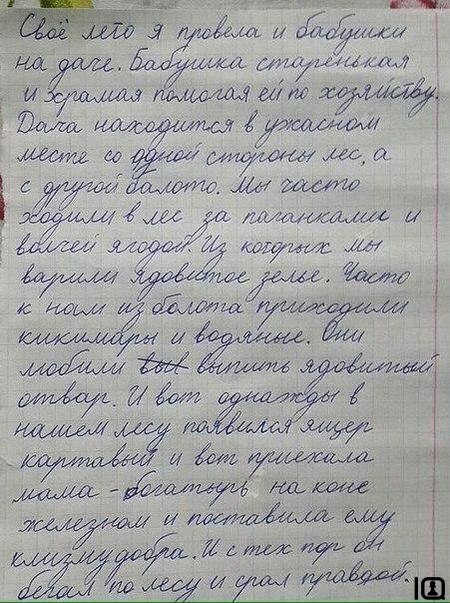 Своё лето я провела и бабушки
на даче. Бабушка старенькая
и храмая помогая ей по хозяйству.
Дача находится в ужасном
месте со одной стороны лес, а
с другой балото. Мы часто
ходили в лес за паганками и
волчей ягодой. Из которых мы
варили ядовитое зелье. Часто
к нам из болота приходили
кикимары и водяные. Они
любили выт выпить ядовитый
отвар. И вот однажды в
нашем лесу появился ящер
картавый и вот приехала
мама - богатырь на коне
железном и поставила ему
клизму добра. И с тех пор он
бегал по лесу и срал правдой.